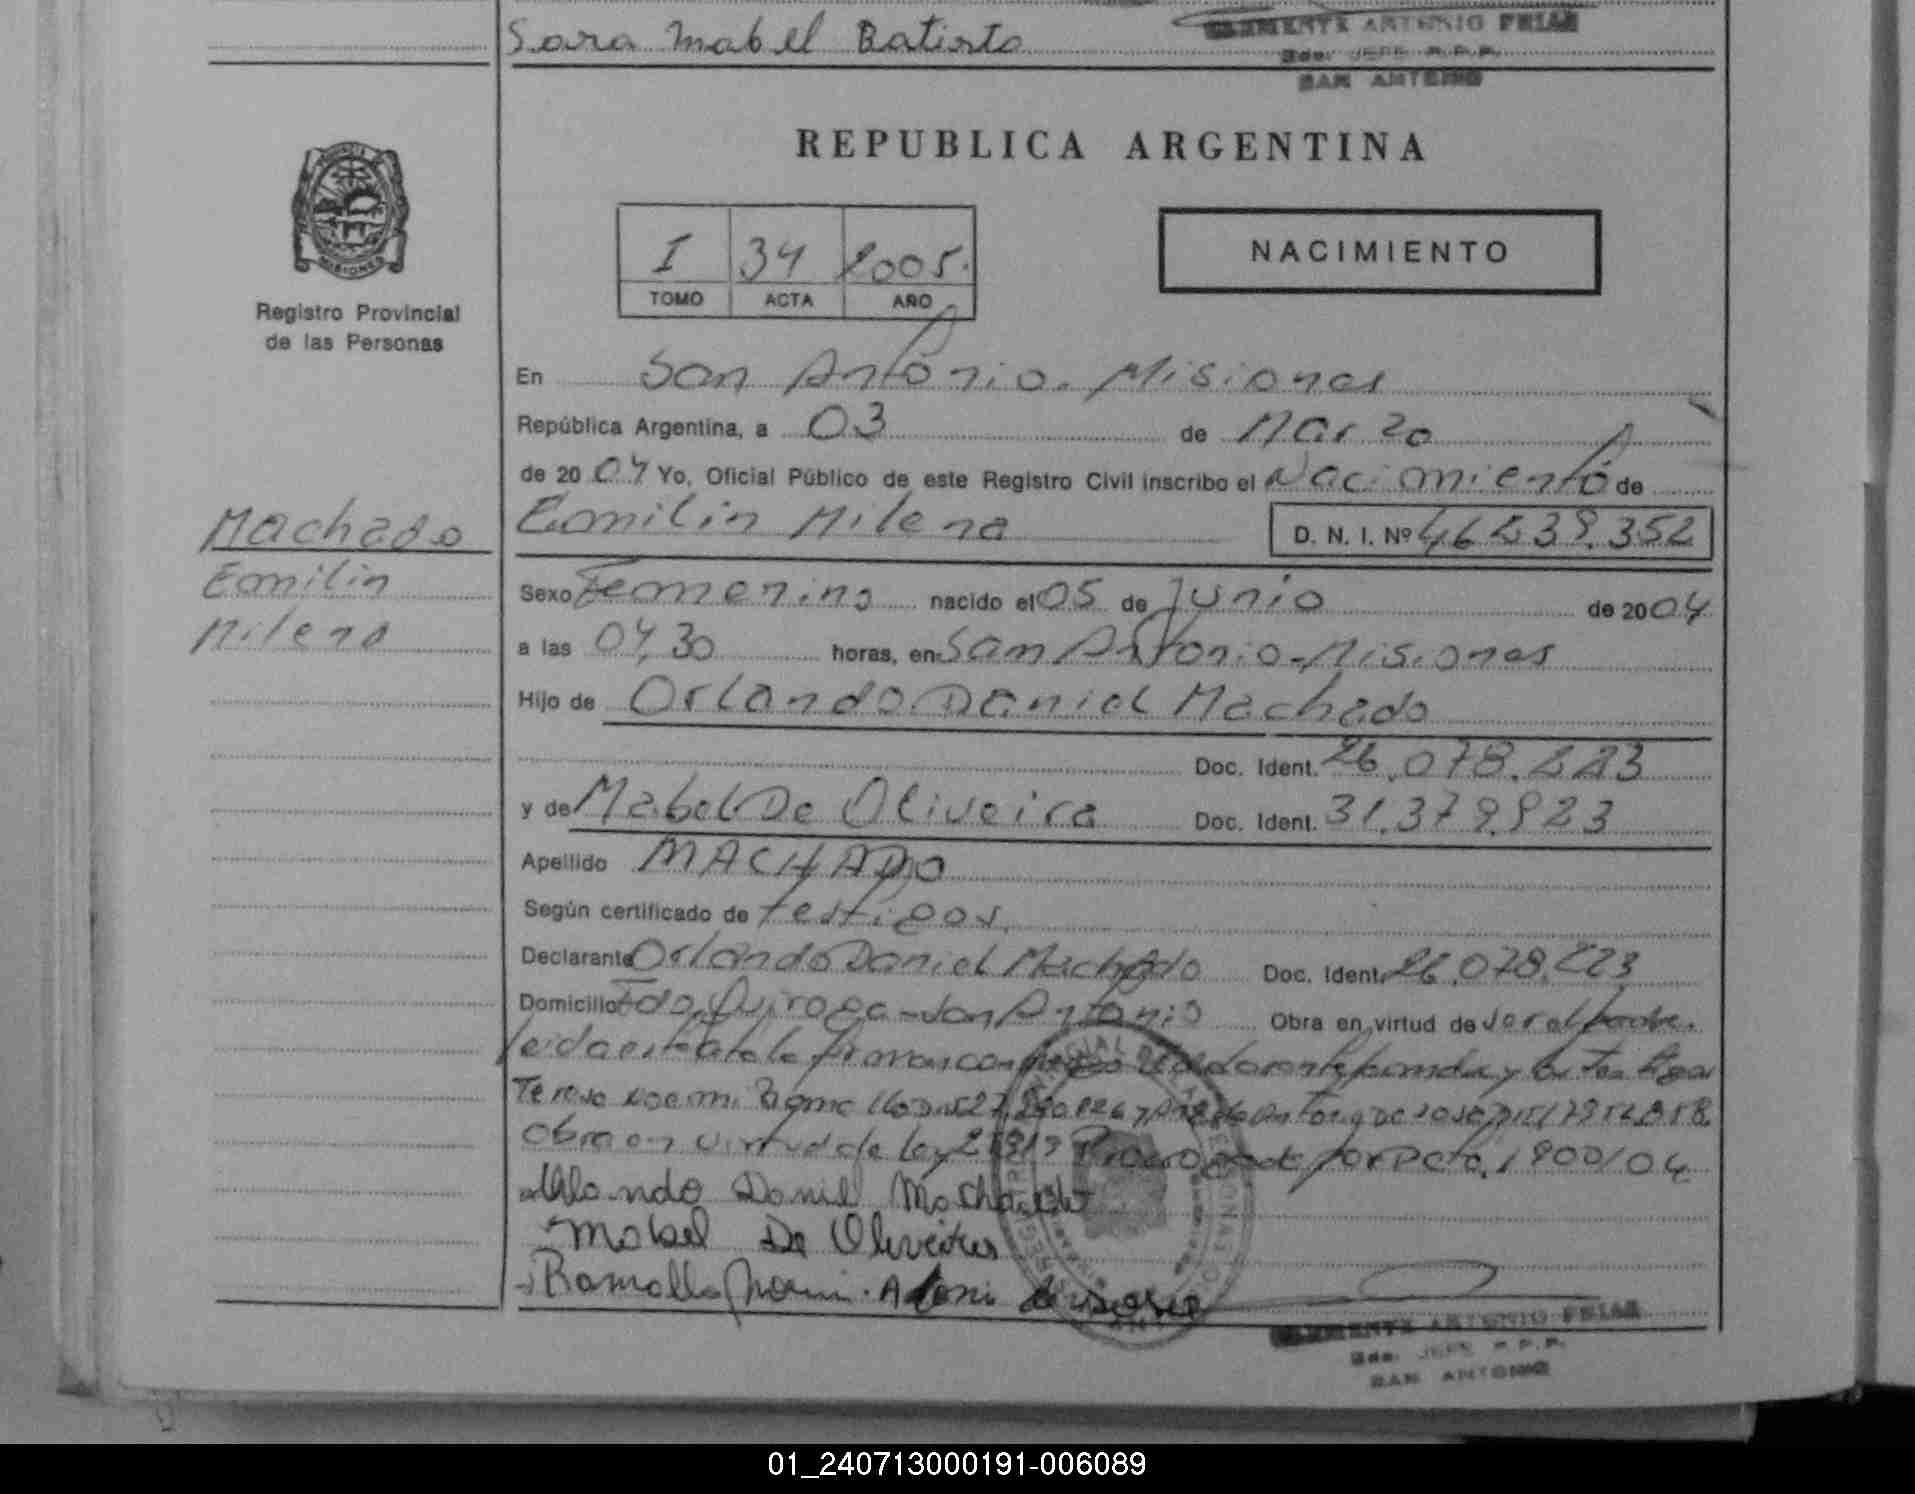 Sara Mabel Batista
CLEMENTE ANTONIO FRIAS
Bdo. JEFE R.P.P.
SAN ANTONIO
REPUBLICA ARGENTINA
I 34 2005.
TOMO ACTA AÑO
NACIMIENTO
PROVINCIA DE
MISIONES
Registro Provincial
de las Personas
En San Antonio. Misiones
República Argentina, a 03 de Marzo
de 20 04 Yo, Oficial Público de este Registro Civil inscribo el Nacimiento de
Emilin Milena D. N. I. Nº 46.539.352
Machado
Emilin
Milena
Sexo Femenino nacido el 05 de Junio de 2004
a las 04,30 horas, en San Antonio-Misiones
Hijo de Orlando Daniel Machado
Doc. Ident. 26.078.223
y de Mabel De Oliveira Doc. Ident. 31.379.923
Apellido MACHADO
Según certificado de testigos.
Declarante Orlando Daniel Machado Doc. Ident. 26.078.223
Domicilio Fdo. Quiroga-San Antonio Obra en virtud de ser el padre.
leida esta acta la firman con el declarante y los testigos
Teresa Noemi
obra en virtud de ley Prorrogada por Dcto. 1900/04
Orlando Daniel Machado
Mabel De Oliveira
CLEMENTE ANTONIO FRIAS
Bdo. JEFE R.P.P.
SAN ANTONIO
01_240713000191-006089